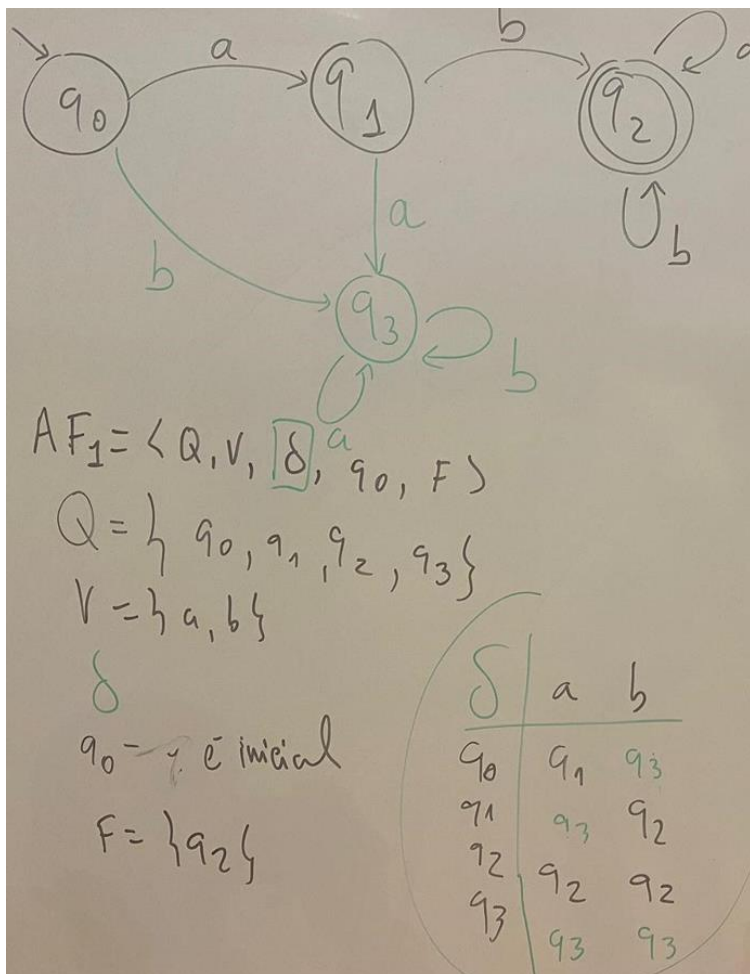 a b a
q0 q1 q2
b a b
q3 b
a
AF1 = < Q, V, δ, q0, F >
Q = { q0, q1, q2, q3 }
V = { a, b }
δ
q0 - é inicial
F = { q2 }
δ a b
q0 q1 q3
q1 q3 q2
q2 q2 q2
q3 q3 q3